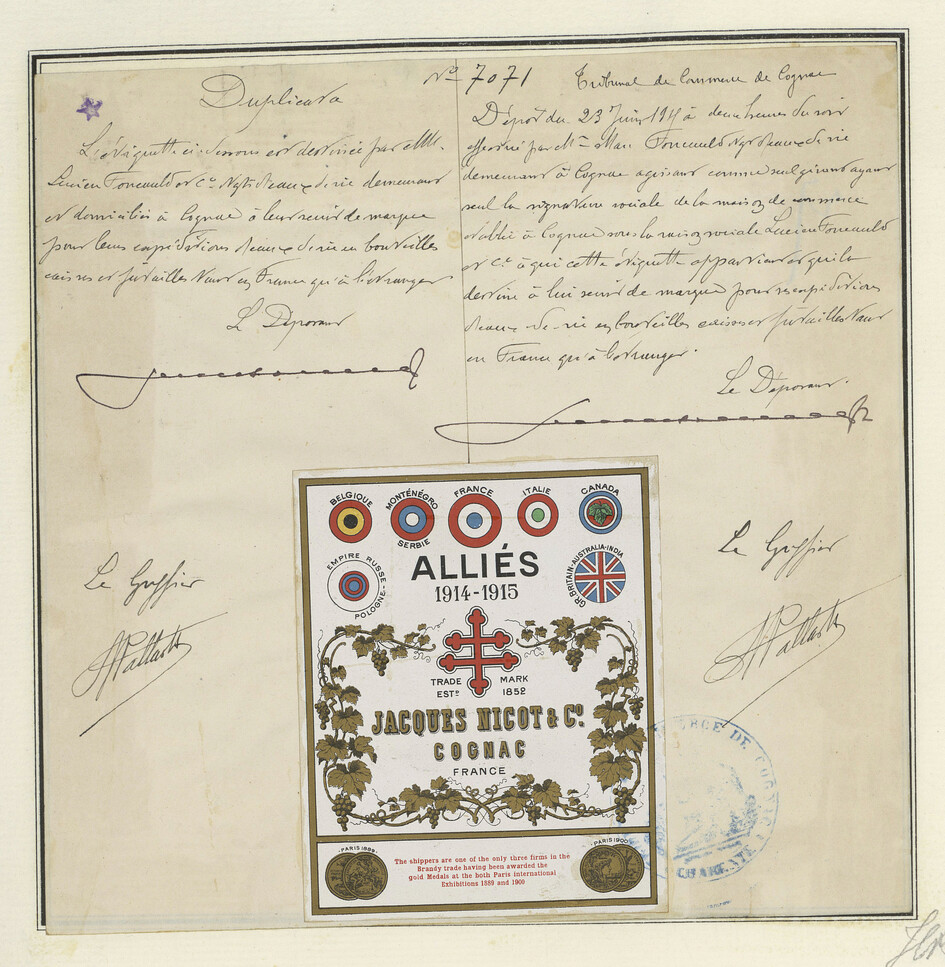 Duplicata
L'étiquette ci-dessous est destinée par MM.
Lucien Foucauld et Cie Ngts d'eaux-de-vie demeurant
et domiciliés à Cognac à leur servir de marque
pour leurs expéditions d'eaux-de-vie en bouteilles
caisses et futailles tant en France qu'à l'étranger
Le Déposant
Le Greffier
No 7071 Tribunal de Commerce de Cognac
Dépôt du 23 Juin à deux heures du soir
effectué par Mr Marc Foucauld Ngt d'eaux-de-vie
demeurant à Cognac agissant comme seul gérant ayant
seul la signature sociale de la maison de commerce
établie à Cognac sous la raison sociale Lucien Foucauld
et Cie à qui cette étiquette appartient et qui la
destine à lui servir de marque pour ses expéditions
d'eaux-de-vie en bouteilles caisses et futailles tant
en France qu'à l'étranger.
Le Déposant.
Le Greffier
BELGIQUE
MONTÉNÉGRO
SERBIE
FRANCE
ITALIE
CANADA
EMPIRE RUSSE
POLOGNE-
GR.BRITAIN-AUSTRALIA-INDIA
ALLIÉS
1914-1915
TRADE MARK
ESTD 1852
JACQUES NICOT & Co.
COGNAC
FRANCE
PARIS 1889
PARIS 1900
The shippers are one of the only three firms in the
Brandy trade having been awarded the
gold Medals at the both Paris international
Exhibitions 1889 and 1900
DE COGNAC
CHARENTE